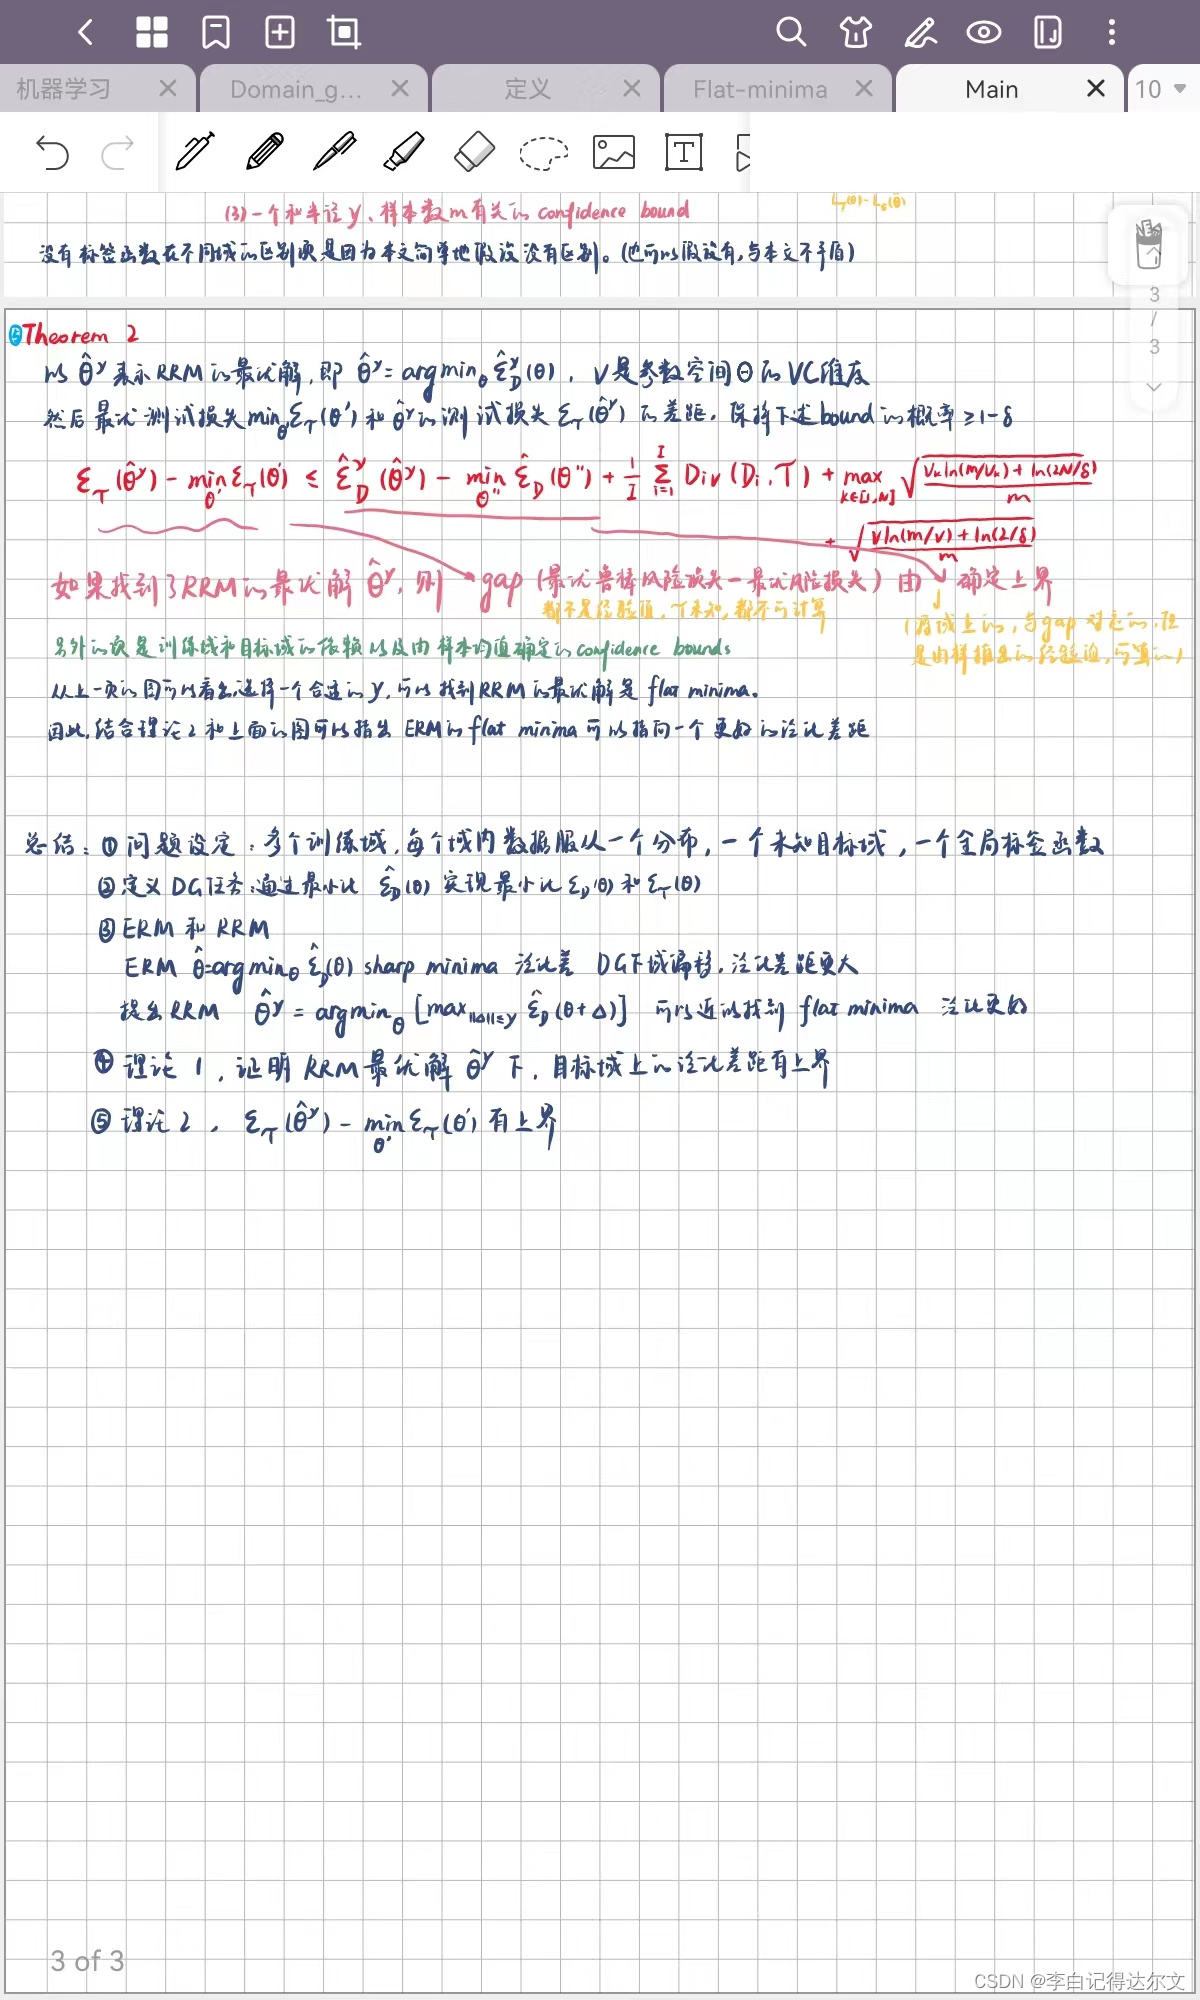 机器学习 Domain_g... 定义 Flat-minima Main 10
(3)一个和半径γ、样本数m有关的 confidence bound
没有标签函数在不同域的区别项是因为本文简单地假设没有区别。(也可以假设有,与本文不矛盾)
⑤Theorem 2
以 θ̂^γ 表示RRM的最优解,即 θ̂^γ = argmin_θ ε̂_D^γ(θ), V是参数空间Θ的VC维度
然后最优测试损失 min_θ' ε_T(θ') 和 θ̂^γ的测试损失 ε_T(θ̂^γ) 的差距, 保持下述bound的概率 ≥ 1-δ
ε_T(θ̂^γ) - min_θ' ε_T(θ') ≤ ε̂_D^γ(θ̂^γ) - min_θ'' ε̂_D(θ'') + 1/I Σ_{i=1}^I Div(D_i, T) + max_{k∈[1,N]} √((V_k ln(m/V_k) + ln(2N/δ))/m)
+ √((v ln(m/v) + ln(2/δ))/m)
如果找到了RRM的最优解 θ̂^γ, 则 gap (最优鲁棒风险损失-最优风险损失) 由 ↓ 确定上界
都不是经验值, T未知, 都不可计算
(源域上的, 与gap 对应的, 但
是由样本推出的经验值, 可算的)
另外的项是训练域和目标域的依赖以及由样本均值确定的 confidence bounds
从上一页的图可以看出,选择一个合适的γ,可以找到RRM的最优解是 flat minima。
因此,结合理论2和上面的图可以指出 ERM的flat minima 可以指向一个更好的泛化差距
总结: ①问题设定:多个训练域,每个域内数据服从一个分布, 一个未知目标域, 一个全局标签函数
②定义DG任务:通过最小化 ε̂_D(θ) 实现最小化 ε_D(θ) 和 ε_T(θ)
③ERM 和 RRM
ERM θ̂=argmin_θ ε̂_D(θ) sharp minima 泛化差 DG下域偏移, 泛化差距更大
提出RRM θ̂^γ = argmin_θ [max_{||Δ||≤γ} ε̂_D(θ+Δ)] 可以近似找到 flat minima 泛化更好
④ 理论1, 证明 RRM最优解 θ̂^γ 下, 目标域上的泛化差距有上界
⑤ 理论2, ε_T(θ̂^γ) - min_θ' ε_T(θ') 有上界
3
/
3
3 of 3
CSDN @李白记得达尔文